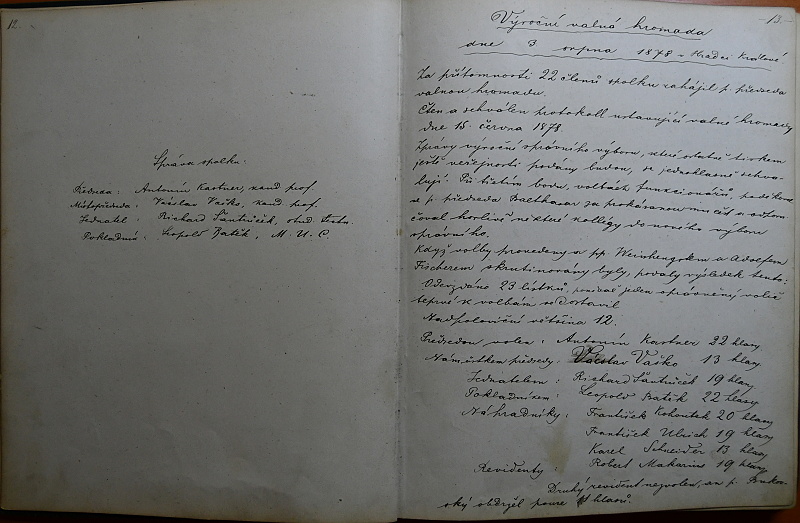 12.
Správa spolku:
Předseda: Antonín Kastner, kand. prof.
Místopředseda: Václav Vaško, kand. prof.
Jednatel: Richard Šantrůček, stud. techn.
Pokladník: Leopold Batěk, M. U. C.
–13.–
Výroční valná hromada
dne 3 srpna 1878 v Hradci Králové.
Za přítomnosti 22 členů spolku zahájil p. předseda
valnou hromadu.
Čten a schválen protokoll ustavující valné hromady
dne 15. června 1878.
Zprávy výroční správního výboru, které ostatně tiskem
ještě veřejnosti podány budou, se jednohlasně schva-
lují. Při třetím bodu, volbách funkcionářů, poděkoval
p. předseda Balthasar za prokázanou mu čest a odporu-
čoval horlivě některé kollegy do nového výboru
správního.
Když volby provedeny a pp. Weinhengstem a Adolfem
Fischerem skrutinovány byly, podaly výsledek tento:
Odevzdáno 23 lístků, poněvač jeden oprávněný volič
teprvé k volbám se dostavil
Nadpoloviční většina 12.
Předsedou volen: Antonín Kastner 22 hlasy
Náměstkem předsedy: Václav Vaško 13 hlasy
Jednatelem: Richard Šantrůček 19 hlasy
Pokladníkem: Leopold Batěk 22 hlasy
Náhradníky: František Kohoutek 20 hlasy
František Ulrich 19 hlasy
Karel Schneider 13 hlasy
Revidenty: Robert Makarius 19 hlasy
Druhý revident nezvolen, an p.
obdržel pouze hlasů.